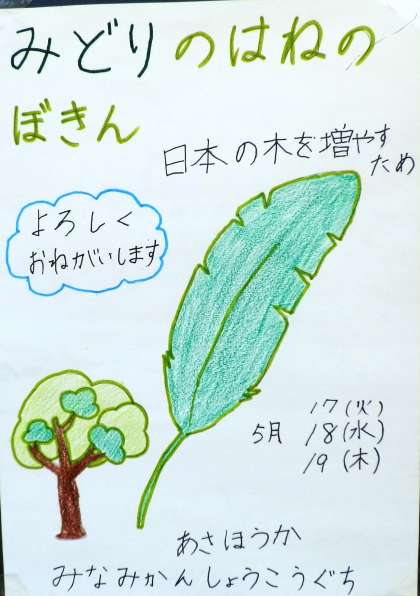 みどりのはねの
ぼきん
日本の木を増やす
ため
よろしく
おねがいします
17(火)
5月 18(水)
19(木)
あさほうか
みなみかんしょうこうぐち